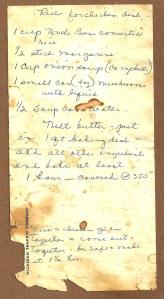 Rice for chicken dish
1 cup Uncle Ben converted
rice
1/2 stick margarine
1 cup onion soup (Campbells)
1 small can mushroom
with liquid
1/2 soup can water
Melt butter - put
in 1 qt baking dish
add all other ingredients
and bake at least
1 hour - covered @ 350°
Rice & chicken go in
together & come out
together - be safe & make
at 1 1/2 hrs.